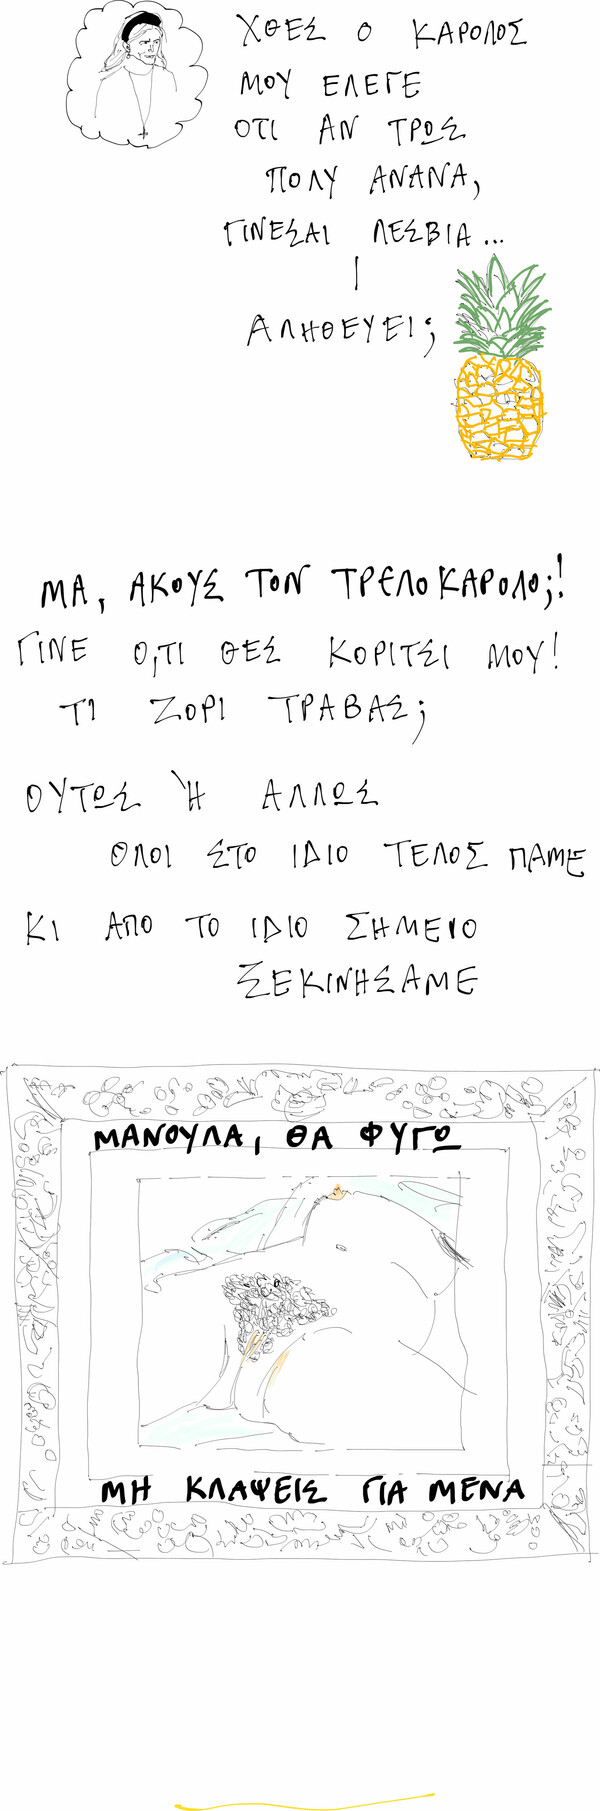 ΧΘΕΣ Ο ΚΑΡΟΛΟΣ
ΜΟΥ ΕΛΕΓΕ
ΟΤΙ ΑΝ ΤΡΩΣ
ΠΟΛΥ ΑΝΑΝΑ,
ΓΙΝΕΣΑΙ ΛΕΣΒΙΑ...
ΑΛΗΘΕΥΕΙ;
ΜΑ, ΑΚΟΥΣ ΤΟΝ ΤΡΕΛΟΚΑΡΟΛΟ;!
ΓΙΝΕ Ο,ΤΙ ΘΕΣ ΚΟΡΙΤΣΙ ΜΟΥ!
ΤΙ ΖΟΡΙ ΤΡΑΒΑΣ;
ΟΥΤΩΣ Ή ΑΛΛΩΣ
ΟΛΟΙ ΣΤΟ ΙΔΙΟ ΤΕΛΟΣ ΠΑΜΕ
ΚΙ ΑΠΟ ΤΟ ΙΔΙΟ ΣΗΜΕΙΟ
ΞΕΚΙΝΗΣΑΜΕ
ΜΑΝΟΥΛΑ, ΘΑ ΦΥΓΩ
ΜΗ ΚΛΑΨΕΙΣ ΓΙΑ ΜΕΝΑ